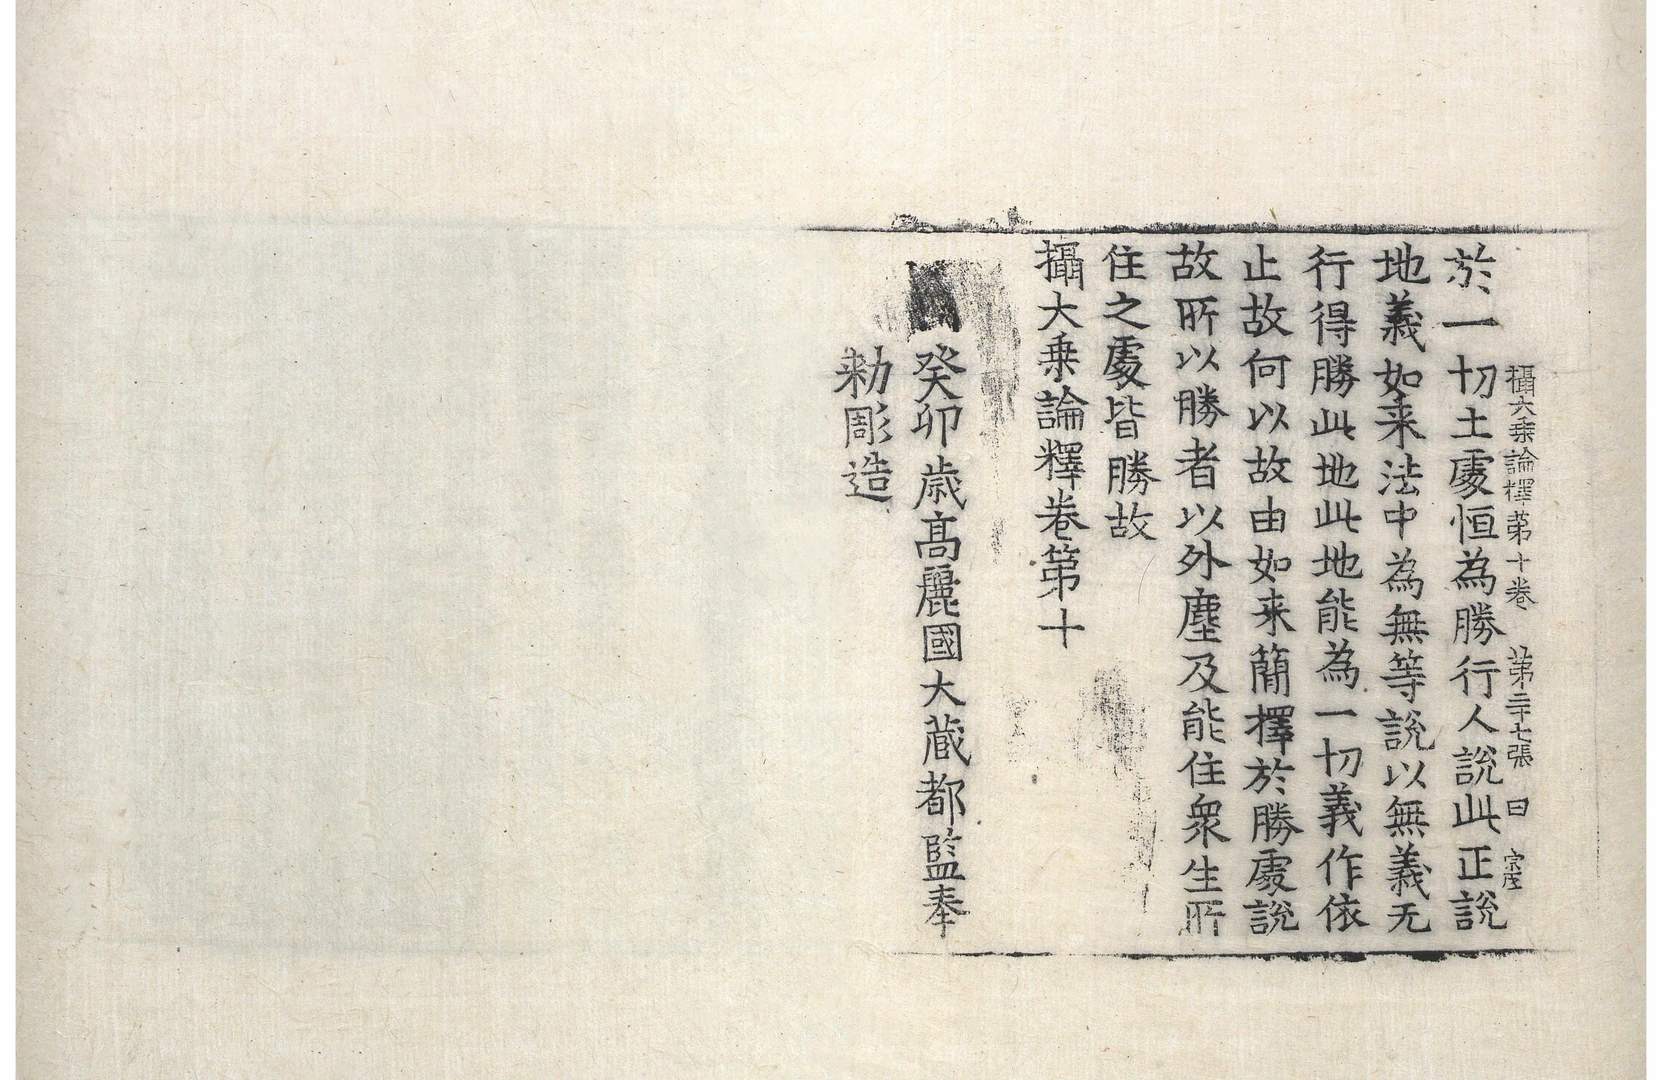 攝大乗論釋第十卷 第二十七張 曰 宗茂
於一切土處恒為勝行人說此正說
地義如来法中為無等說以無義无
行得勝此地此地能為一切義作依
止故何以故由如来簡擇於勝處說
故所以勝者以外塵及能住衆生所
住之處皆勝故
攝大乗論釋卷第十
癸卯歳髙麗國大蔵都監奉
勑彫造